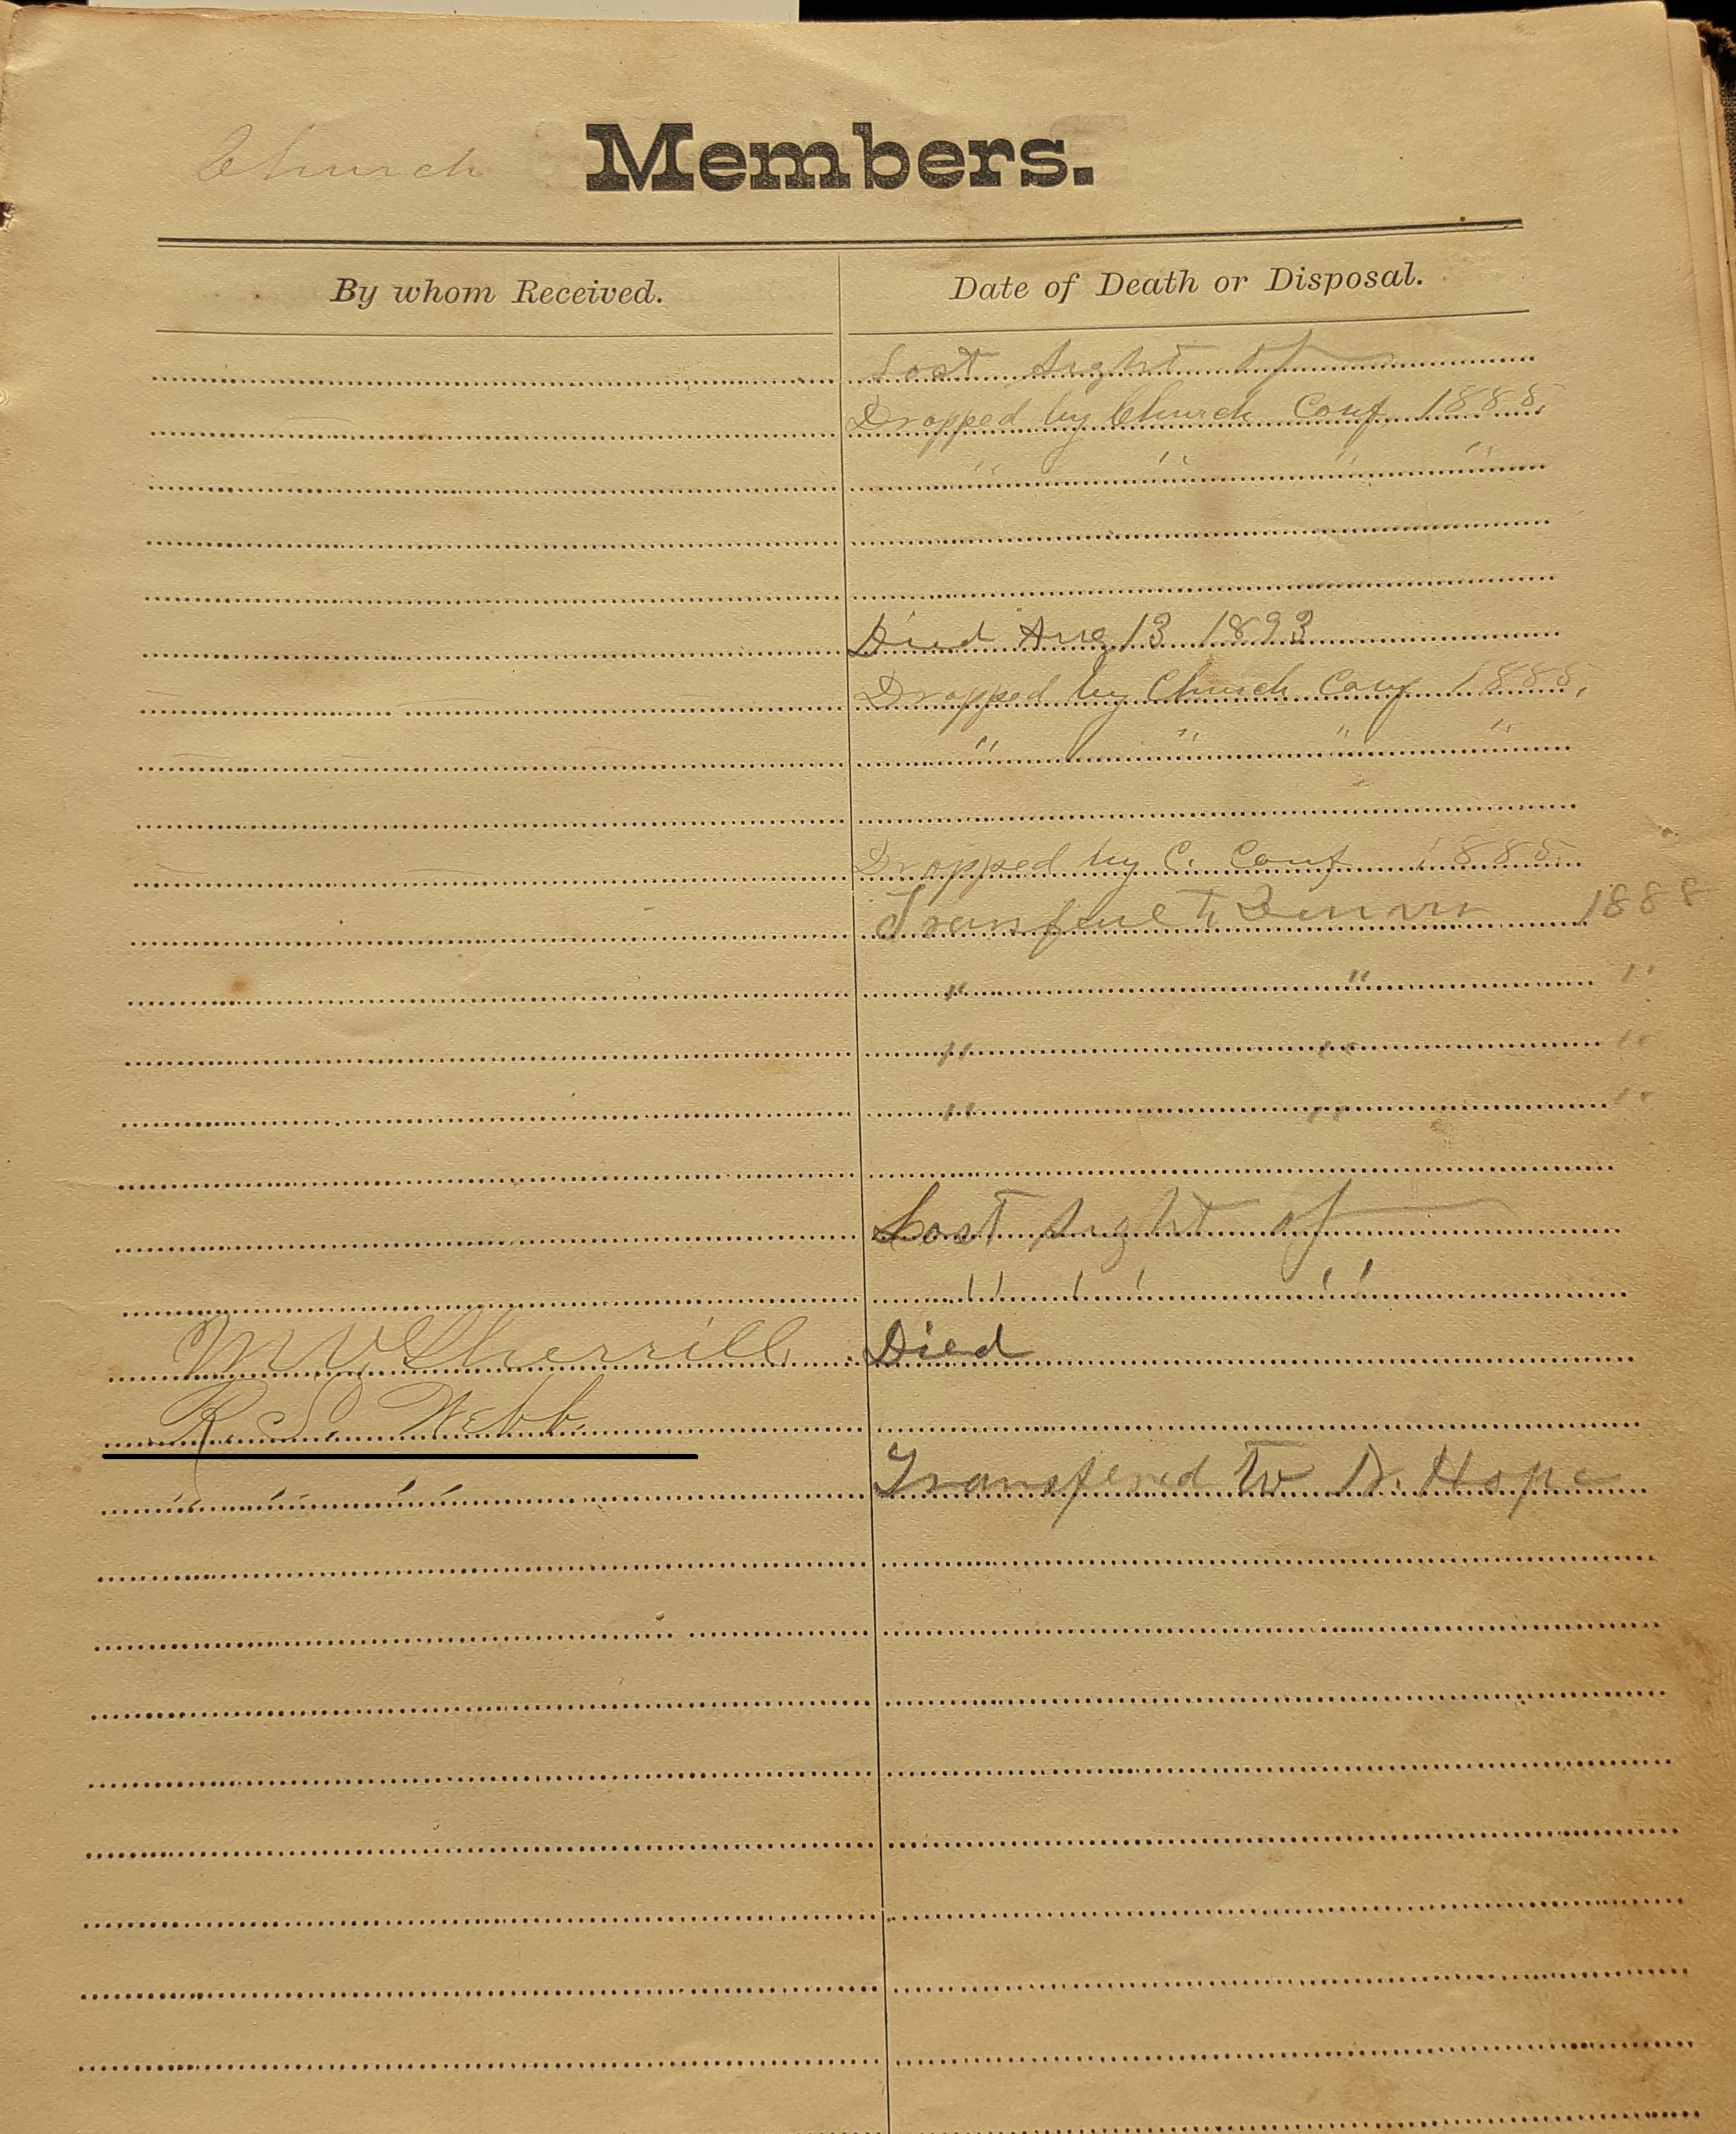 Church Members.
By whom Received. Date of Death or Disposal.
Lost sight of
Dropped by Church Conf. 1888.
" " " "
Died Aug 13 1893
Dropped by Church Conf 1888.
" " " "
Dropped by C. Conf 1888.
to 1888
" " "
" " "
" " "
Lost sight of
" " "
M V Sherrill Died
R. S. Webb.
" " " Transfered to N. Hope